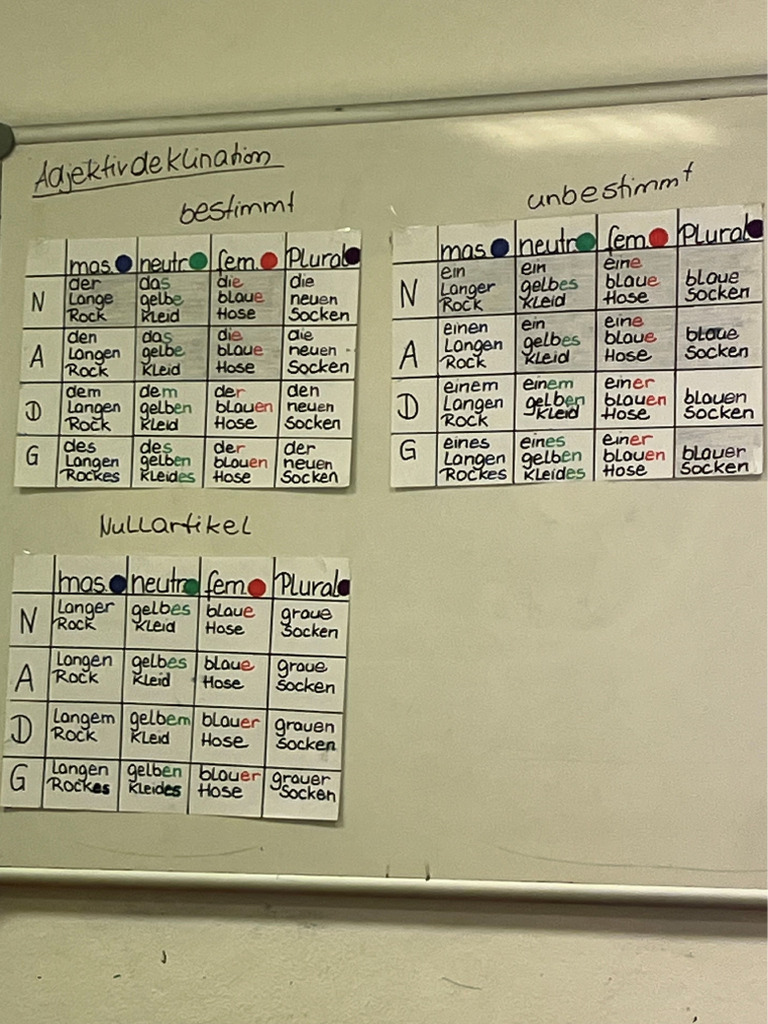 Adjektivdeklination
bestimmt
mas. neutr. fem. Plural
N
der
Lange
Rock
das
gelbe
Kleid
die
blaue
Hose
die
neuen
Socken
A
den
Langen
Rock
das
gelbe
Kleid
die
blaue
Hose
die
neuen
Socken
D
dem
Langen
Rock
dem
gelben
Kleid
der
blauen
Hose
den
neuen
Socken
G
des
Langen
Rockes
des
gelben
Kleides
der
blauen
Hose
der
neuen
Socken
unbestimmt
mas. neutr. fem. Plural
N
ein
Langer
Rock
ein
gelbes
Kleid
eine
blaue
Hose
blaue
Socken
A
einen
Langen
Rock
ein
gelbes
Kleid
eine
blaue
Hose
blaue
Socken
D
einem
Langen
Rock
einem
gelben
Kleid
einer
blauen
Hose
blauen
Socken
G
eines
Langen
Rockes
eines
gelben
Kleides
einer
blauen
Hose
blauer
Socken
Nullartikel
mas. neutr. fem. Plural
N
Langer
Rock
gelbes
Kleid
blaue
Hose
graue
Socken
A
Langen
Rock
gelbes
Kleid
blaue
Hose
graue
Socken
D
Langem
Rock
gelbem
Kleid
blauer
Hose
grauen
Socken
G
Langen
Rockes
gelben
Kleides
blauer
Hose
grauer
Socken